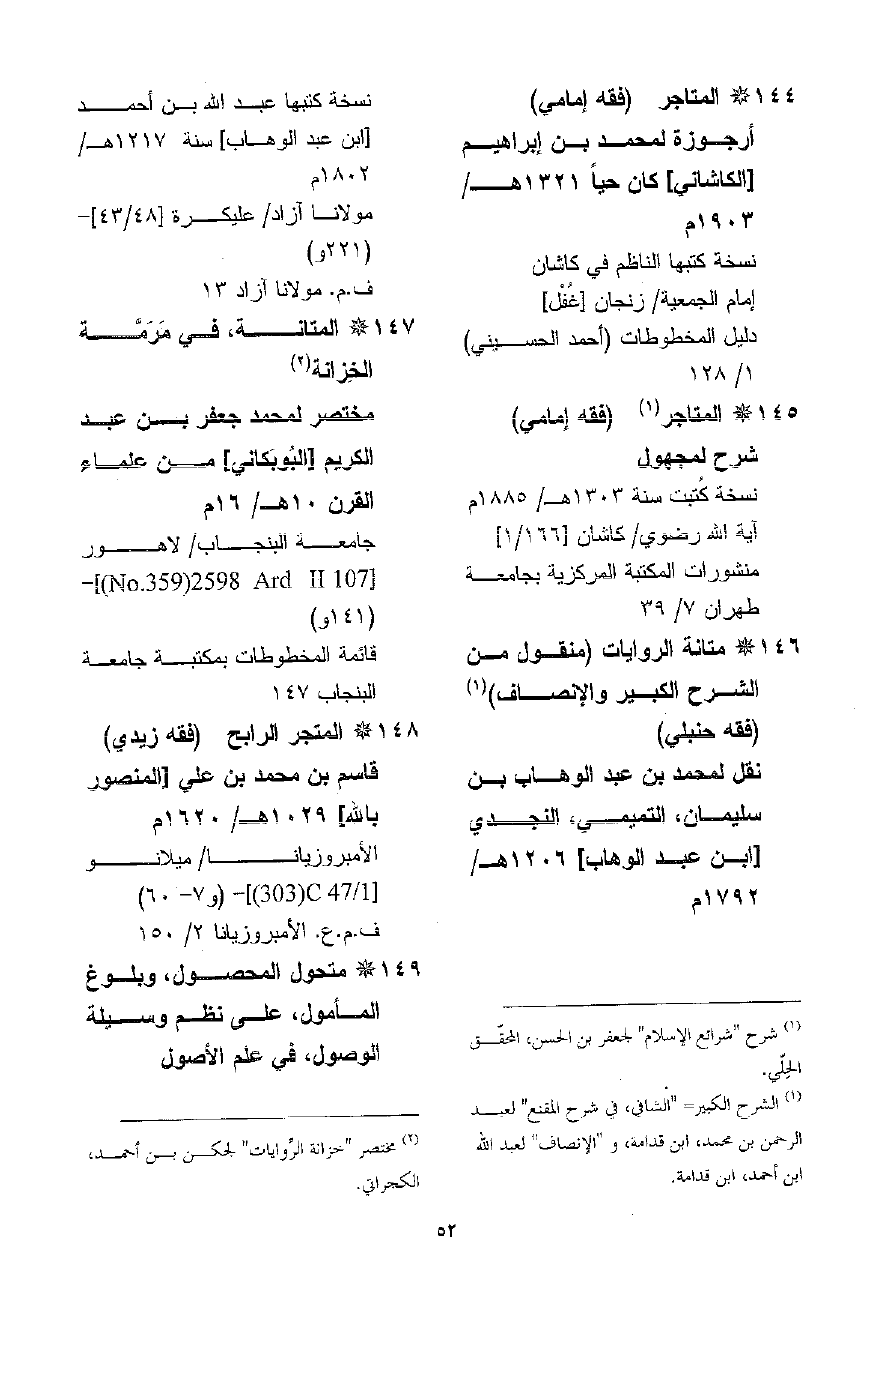 ١٤٤ ❊ المتاجر (فقه إمامي)
أرجوزة لمحمد بن إبراهيم
[الكاشاني] كان حياً ١٣٢١هـ/
١٩٠٣م
نسخة كتبها الناظم في كاشان
إمام الجمعية/ زنجان [غُفْل]
دليل المخطوطات (أحمد الحسيني)
١/ ١٢٨
١٤٥ ❊ المتاجر(١) (فقه إمامي)
شرح لمجهول
نسخة كُتبت سنة ١٣٠٣هـ/ ١٨٨٥م
آية الله رضوي/ كاشان [١/١٦٦]
منشورات المكتبة المركزية بجامعة
طهران ٧/ ٣٩
١٤٦ ❊ متانة الروايات (منقول من
الشرح الكبير والإنصاف)(١)
(فقه حنبلي)
نقل لمحمد بن عبد الوهاب بن
سليمان، التميمي، النجدي
[ابن عبد الوهاب] ١٢٠٦هـ/
١٧٩٢م
(١) شرح "شرائع الإسلام" لجعفر بن الحسن، المحقّق
الحِلّي.
(١) الشرح الكبير= "الشافي، في شرح المقنع" لعبد
الرحمن بن محمد، ابن قدامة، و "الإنصاف" لعبد الله
ابن أحمد، ابن قدامة.
نسخة كتبها عبد الله بن أحمد
[ابن عبد الوهاب] سنة ١٢١٧هـ/
١٨٠٢م
مولانا آزاد/ عليكرة [٤٣/٤٨]-
(٢٢١و)
ف.م. مولانا آزاد ١٣
١٤٧ ❊ المتانة، في مَرَمَّة
الخِزانة(٢)
مختصر لمحمد جعفر بن عبد
الكريم [البُوبَكاني] من علماء
القرن ١٠هـ/ ١٦م
جامعة البنجاب/ لاهور
[No.359)2598 Ard II 107)]-
(١٤١و)
قائمة المخطوطات بمكتبة جامعة
البنجاب ١٤٧
١٤٨ ❊ المتجر الرابح (فقه زيدي)
قاسم بن محمد بن علي [المنصور
بالله] ١٠٢٩هـ/ ١٦٢٠م
الأمبروزيانا/ ميلانو
[(303)C 47/1]- (و٧- ٦٠)
ف.م.ع. الأمبروزيانا ٢/ ١٥٠
١٤٩ ❊ متحول المحصول، وبلوغ
المأمول، على نظم وسيلة
الوصول، في علم الأصول
(٢) مختصر "خزانة الرِّوايات" لجكن بن أحمد،
الكجراتي.
٥٢